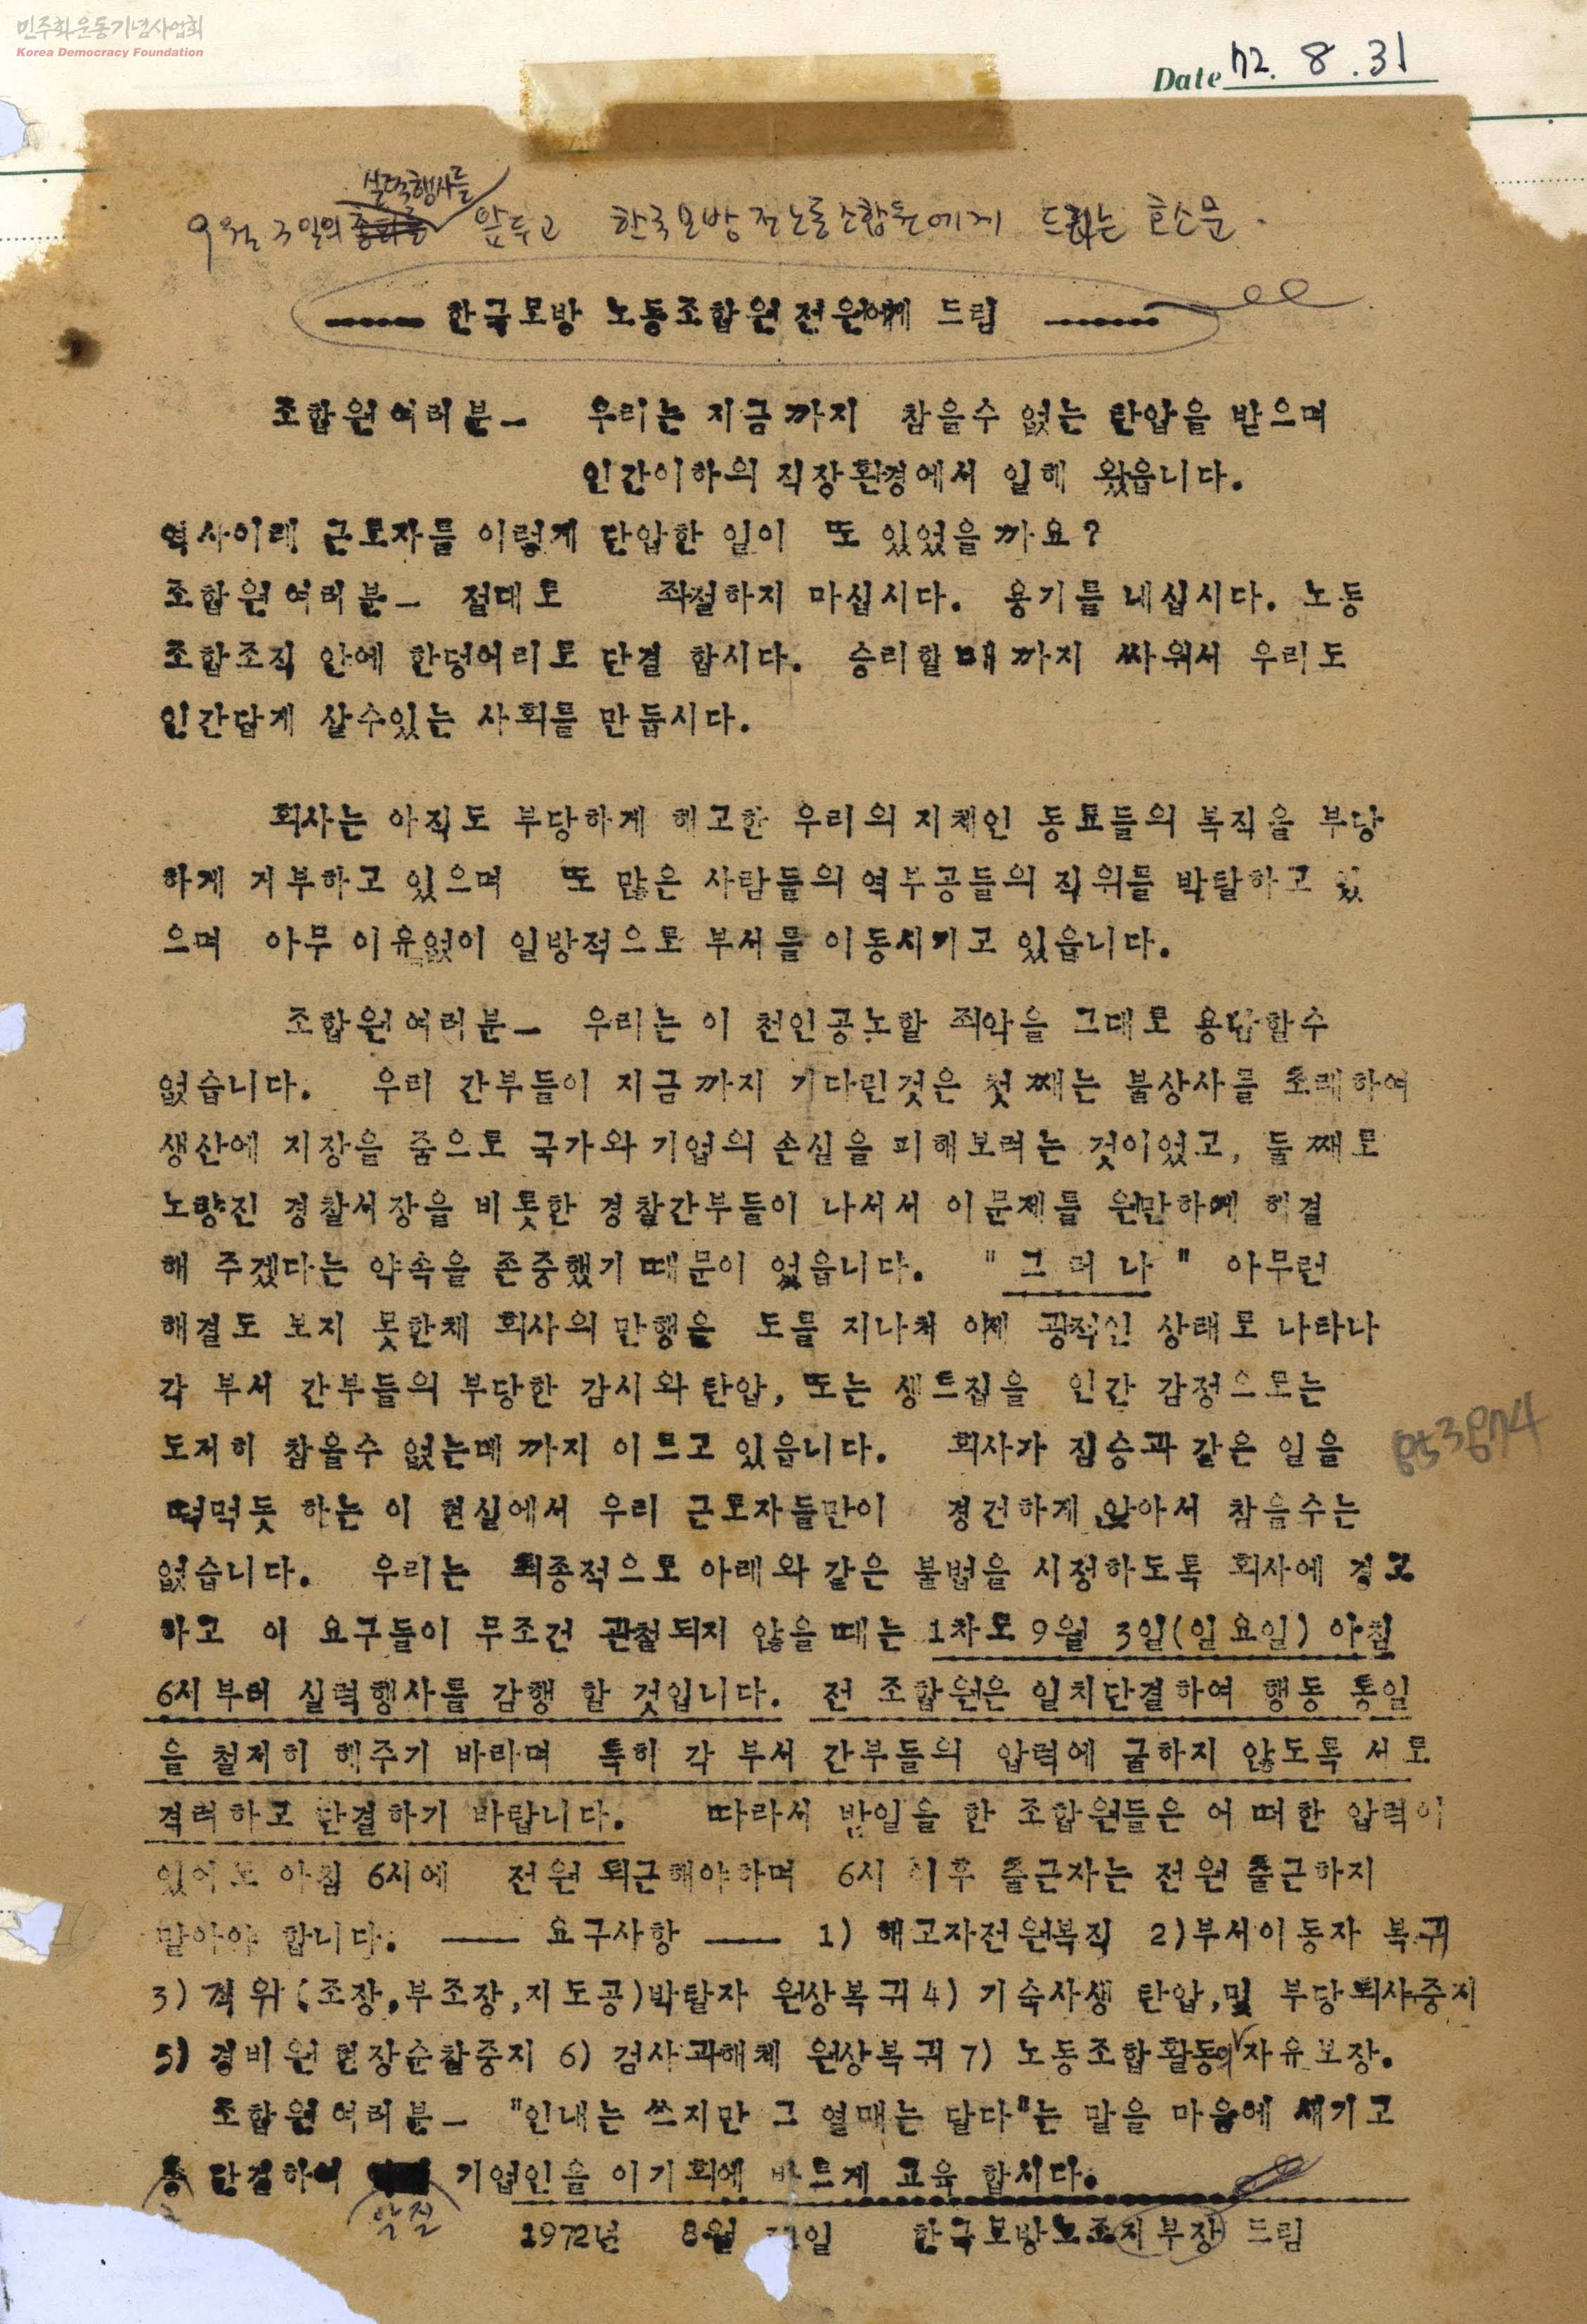 민주화운동기념사업회
Korea Democracy Foundation
Date 72. 8. 31
실력행사를
9월 3일의 앞두고 한국모방 전노동조합원에게 드리는 호소문.
한국모방 노동조합원 전원에게 드림
조합원여러분— 우리는 지금까지 참을수 없는 탄압을 받으며
인간이하의 직장환경에서 일해 왔읍니다.
역사이래 근로자를 이렇게 탄압한 일이 또 있었을까요?
조합원여러분— 절대로 좌절하지 마십시다. 용기를 내십시다. 노동
조합조직 안에 한덩어리로 단결 합시다. 승리할때까지 싸워서 우리도
인간답게 살수있는 사회를 만듭시다.
회사는 아직도 부당하게 해고한 우리의 지체인 동료들의 복직을 부당
하게 거부하고 있으며 또 많은 사람들의 역부공들의 직위를 박탈하고 있
으며 아무 이유없이 일방적으로 부서를 이동시키고 있읍니다.
조합원여러분— 우리는 이 천인공노할 죄악을 그대로 용납할수
없습니다. 우리 간부들이 지금까지 기다린것은 첫째는 불상사를 초래하여
생산에 지장을 줌으로 국가와 기업의 손실을 피해보려는 것이었고, 둘째로
노량진 경찰서장을 비롯한 경찰간부들이 나서서 이문제를 원만하게 해결
해 주겠다는 약속을 존중했기 때문이 었읍니다. "그 러 나" 아무런
해결도 보지 못한채 회사의 만행은 도를 지나쳐 이제 광적인 상태로 나타나
각 부서 간부들의 부당한 감시와 탄압, 또는 생트집을 인간 감정으로는
도저히 참을수 없는데까지 이르고 있읍니다. 회사가 짐승과 같은 일을
떡먹듯 하는 이 현실에서 우리 근로자들만이 경건하게 앉아서 참을수는
없습니다. 우리는 최종적으로 아래와 같은 불법을 시정하도록 회사에 경고
하고 이 요구들이 무조건 관철되지 않을때는 1차로 9월 3일(일요일) 아침
6시부터 실력행사를 감행 할 것입니다. 전 조합원은 일치단결하여 행동 통일
을 철저히 해주기 바라며 특히 각 부서 간부들의 압력에 굴하지 않도록 서로
격려하고 단결하기 바랍니다. 따라서 밤일을 한 조합원들은 어떠한 압력이
있어도 아침 6시에 전원 퇴근해야하며 6시 이후 출근자는 전원 출근하지
말아야 합니다. —— 요구사항 —— 1) 해고자전원복직 2)부서이동자 복귀
3) 직위(조장,부조장,지도공)박탈자 원상복귀 4) 기숙사생 탄압,및 부당퇴사중지
5) 경비원현장순찰중지 6) 검사과해체 원상복귀 7) 노동조합활동의 자유보장.
조합원여러분— "인내는 쓰지만 그 열매는 달다"는 말을 마음에 새기고
총 단결하여 기업인을 이기회에 바르게 교육 합시다.
악질
1972년 8월 일 한국모방노조지부장 드림